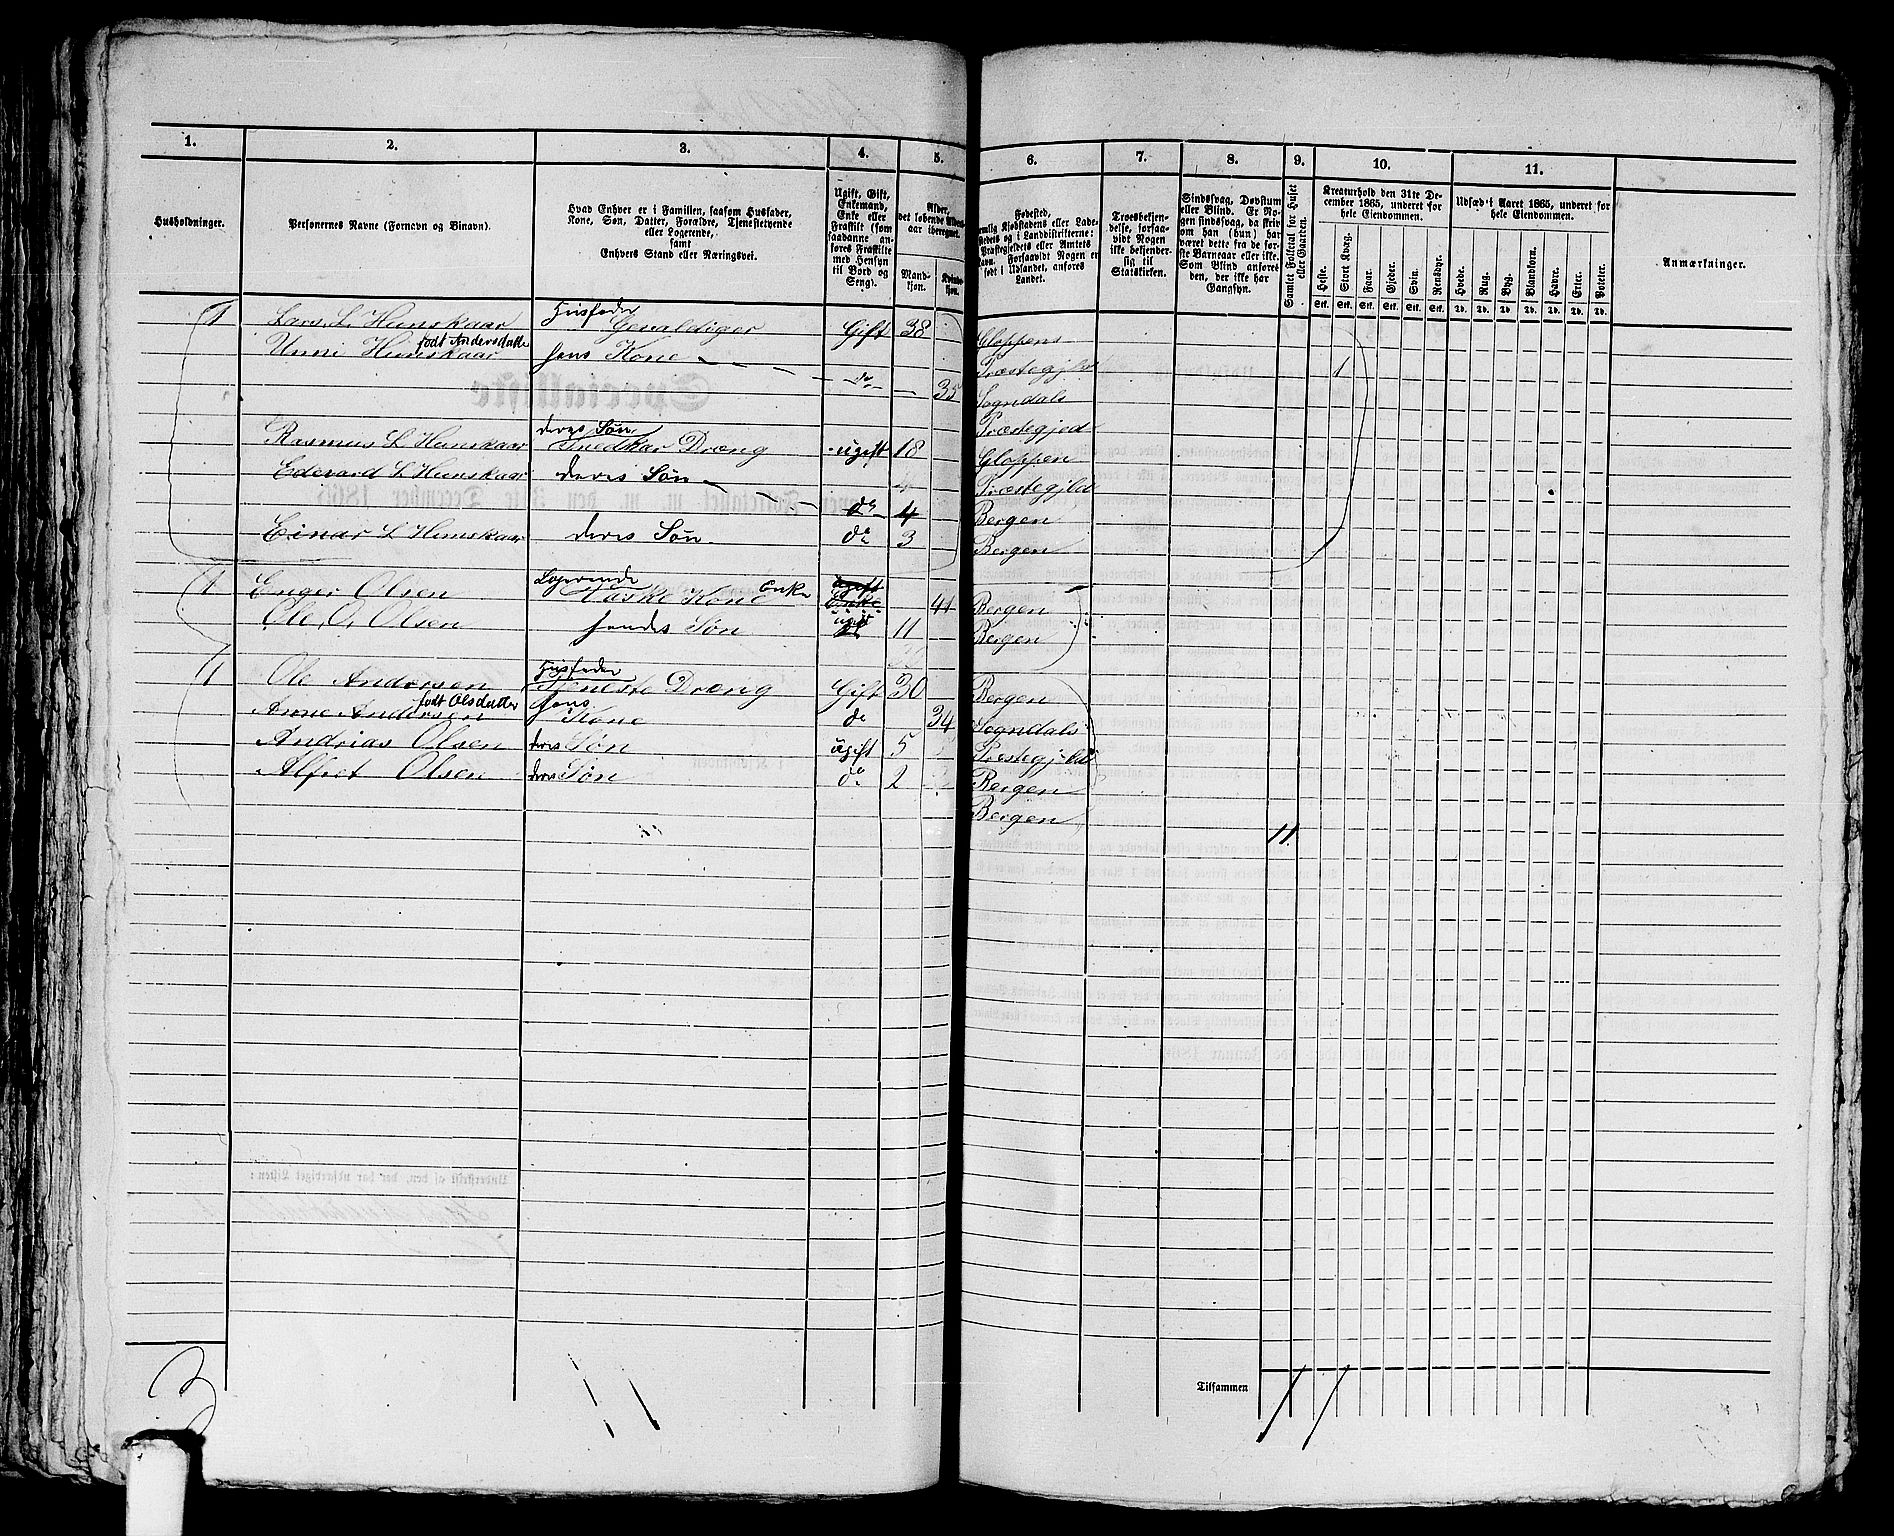 1. 2. 3. 4. 5. 6. 7. 8. 9. 10. 11.
Husholdninger.
Personernes Navne (Fornavn og Binavn).
Hvad Enhver er i Familien, saasom Husfader,
Kone, Søn, Datter, Forældre, Tjenestetyende
eller Logerende,
samt
Enhvers Stand eller Næringsvei.
Ugift, Gift,
Enkemand,
Enke eller
Fraskilt (som
saadanne an-
føres Fraskilte
med Hensyn
til Bord og
Seng).
Alder,
det løbende Alders-
aar iberegnet.
Mand-
kjøn.
Kvinde-
kjøn.
Fødested,
nemlig Kjøbstadens eller Lade-
stedets og i Landdistrikterne:
Præstegjeldets eller Amtets
Navn. Forsaavidt Nogen er
født i Udlandet, anføres
Landet.
Troesbekjen-
delse, forsaa-
vidt Nogen
ikke bekjender
sig til
Statskirken.
Sindssvag, Døvstum
eller Blind. Er No-
gen sindssvag, da skriv
om han (hun) har
været dette fra de før-
ste Barneaar eller ikke.
Som Blind anføres
den, der ikke har
Gangsyn.
Samlet Folketal for Huset
eller Gaarden.
Kreaturhold den 31te De-
cember 1865, underet for
hele Eiendommen.
Heste. Stort Kvæg. Faar. Gjeder. Svin. Rensdyr.
Stk. Stk. Stk. Stk. Stk. Stk.
Udsæd i Aaret 1865, underet for
hele Eiendommen.
Hvede. Rug. Byg. Blandkorn. Havre. Erter. Poteter.
Td. Td. Td. Td. Td. Td. Td.
Anmærkninger.
Husfader
1 Lars L Humskaar Gevaldiger Gift 38 Gloppens
født Andersdatter
Unni Humskaar hans Kone Præstegjeld 1
do 35 Sogndals
deres Søn Præstegjed
Rasmus L Humskaar Snedkar Dræng ugift 18 Gloppen
Edevard L Humskaar deres Søn Præstegjeld
do 4 Bergen
Einar L Humskaar deres Søn do 3 Bergen
Logerende ugift
1 Enger Olsen Vaske Kone Enke Enke 41 Bergen
Ole O. Olsen hendes Søn ugift 11 Bergen
Husfader
1 Ole Andersen Tjeneste Dræng Gift 30 Bergen
født Olsdatter hans
Anne Andersen Kone do 34 Sogndals
Andrias Olsen deres Søn ugift 5 Præstegjeld
Alfret Olsen deres Søn do 2 Bergen
Bergen
11
3 11
Tilsammen 11